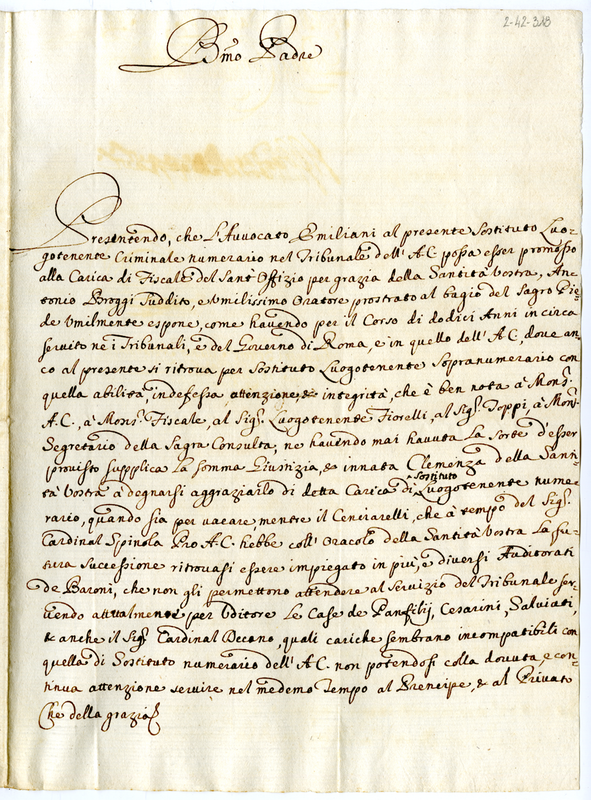 2-42-328
Bmo Padre
Presentendo, che L'Avvocato Emiliani al presente Sostituto Luo-
gotenente Criminale numerario nel Tribunale dell'A.C. possa esser promosso
alla Carica di Fiscale del Sant'Offizio per grazia della Santità Vostra, An-
tonio Broggi suddito, e Umilissimo Oratore prostrato al bagio del Sagro Pie-
de Umilmente espone, come havendo per il Corso di dodici Anni in circa
servito ne i Tribunali, e del Governo di Roma, e in quello dell'A.C, dove an-
co al presente si ritrova per Sostituto Luogotenente Sopranumerario con
quella abilità, indefessa attenzione, & integrità, che è ben nota à Monsr
A.C., à Monsr Fiscale, al Sigr Luogotenente Fiorelli, al Sigr Toppi, à Monsr
Segretario della Sagra Consulta, ne havendo mai havuta La Sorte d'esser
provisto supplica La somma Giustizia, & innata Clemenza della Santi-
tà Vostra à degnarsi aggraziarlo di detta Carica di Sostituto Luogotenente nume-
rario, quando sia per vacare, mentre il Cenciarelli, che à tempo del Sigr
Cardinal Spinola Pro A.C. hebbe coll'Oracolo della Santità Vostra La fu-
tura successione ritrovasi essere impiegato in più, e diversi Auditorati
de Baroni, che non gli permettono attendere al servizio del Tribunale ser-
vendo attualmente per Uditore Le Case de Panfilij, Cesarini, Salviati,
& anche il Sigr Cardinal Decano, quali cariche sembrano incompatibili con
quella di Sostituto numerario dell'A.C. non potendosi colla dovuta, e con-
tinua attenzione servire nel medemo Tempo al Prencipe, & al Privato
Che della grazia